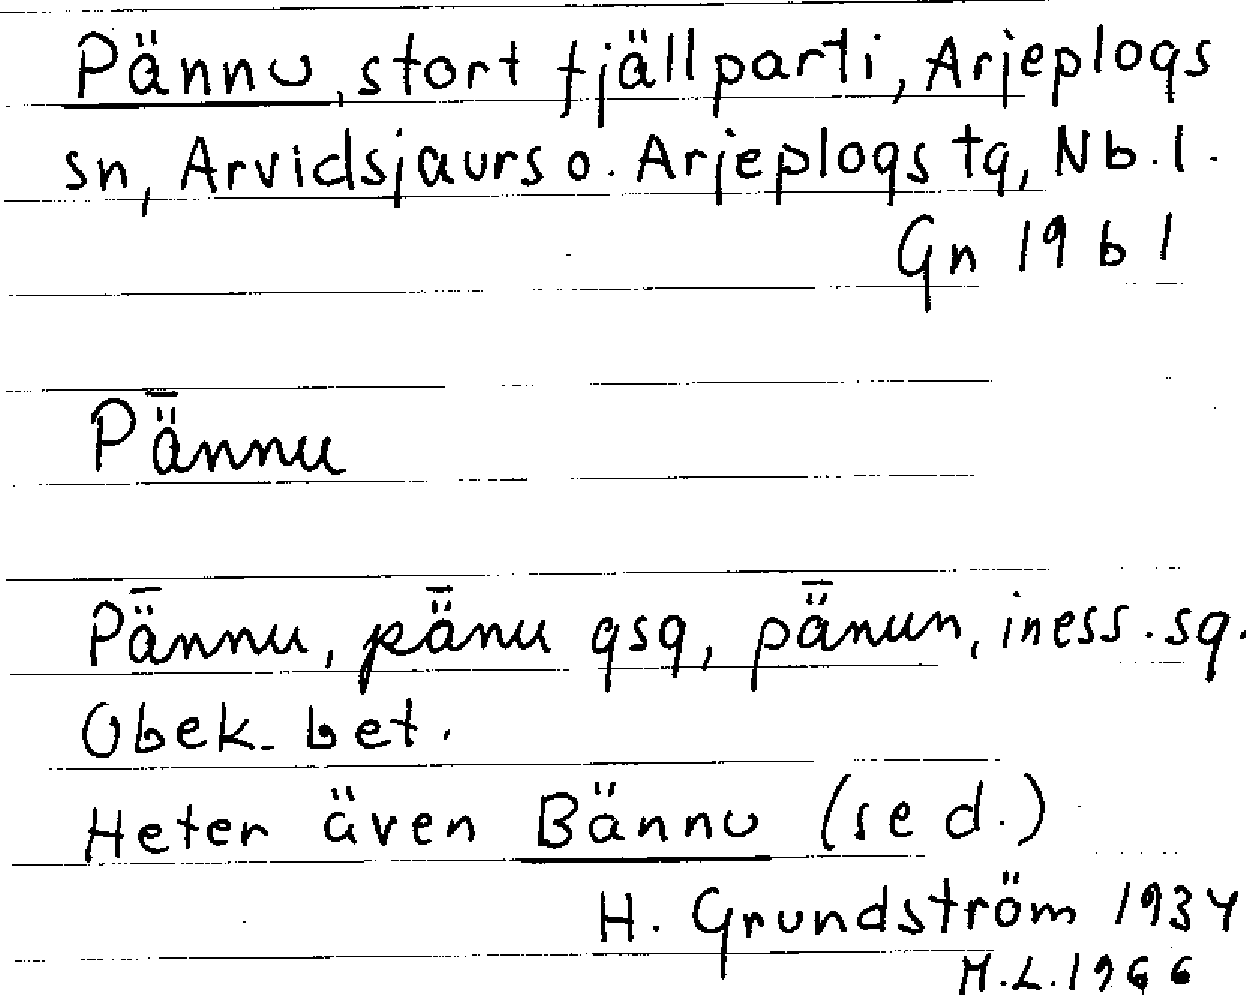 Pännu, stort fjällparti, Arjeplogs
sn, Arvidsjaurs o. Arjeplogs tg, Nb. l.
Gn 1961
Pǟnnu
Pǟnnu, pǟnu gsg, pǟnun, iness. sg.
Obek. bet.
Heter även Bännu (se d.)
H. Grundström 1934
M.L. 1966